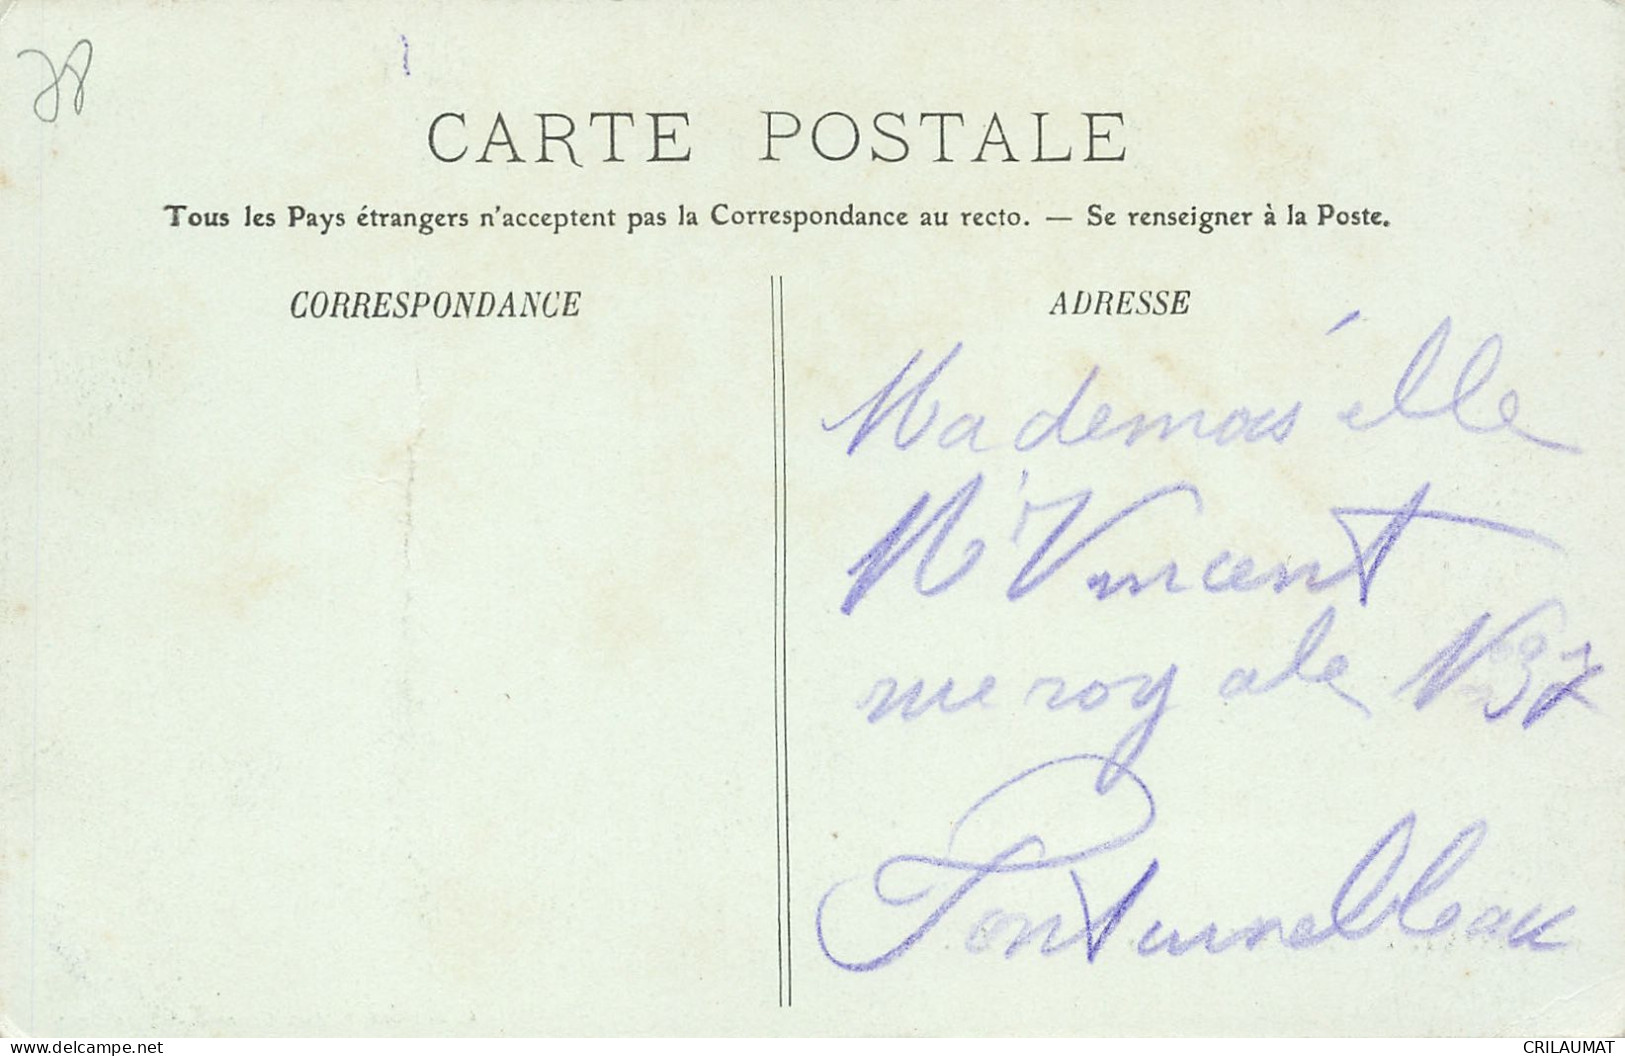 78
CARTE POSTALE
Tous les Pays étrangers n'acceptent pas la Correspondance au recto. — Se renseigner à la Poste.
CORRESPONDANCE
ADRESSE
Mademoiselle
Vincent
rue royale N 37
Fontainebleau
www.delcampe.net
CRILAUMAT